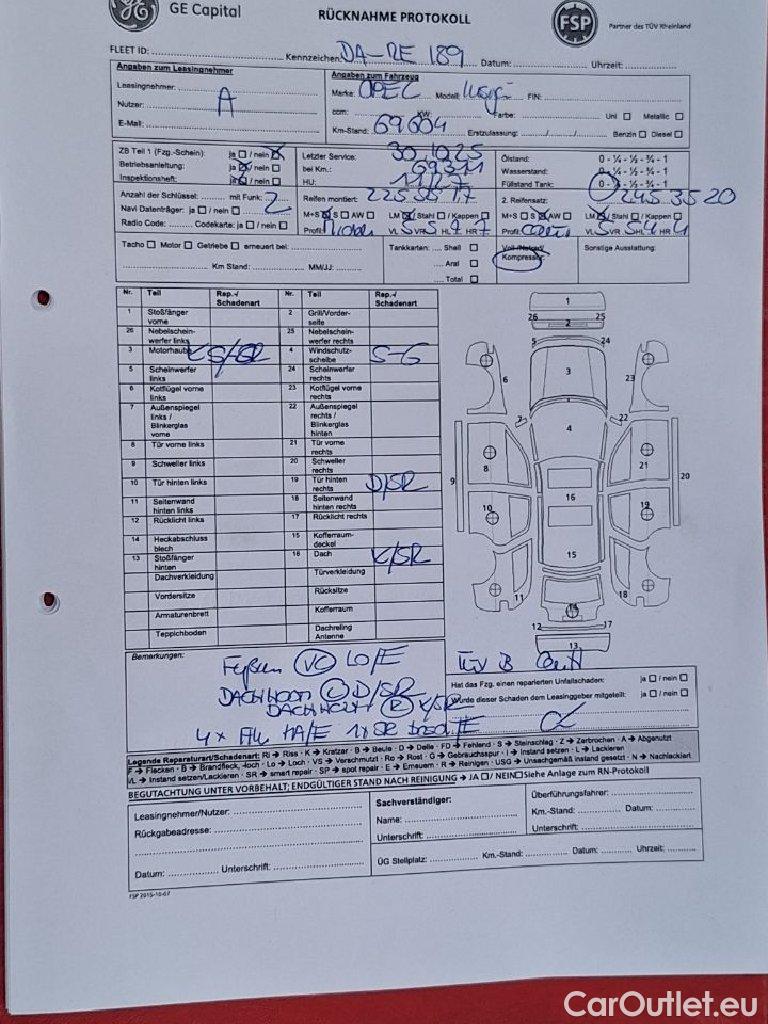 GE Capital
RÜCKNAHME PROTOKOLL
FSP
Partner des TÜV Rheinland
FLEET ID: Kennzeichen: DA-RE 189 Datum: Uhrzeit:
Angaben zum Leasingnehmer
Angaben zum Fahrzeug
Leasingnehmer:
Nutzer: A
E-Mail:
Marke: OPEL Modell: FIN:
ccm: KW: Farbe: Uni Metallic
Km-Stand: 69604 Erstzulassung: Benzin Diesel
ZB Teil 1 (Fzg.-Schein): ja / nein
Betriebsanleitung: ja / nein
Inspektionsheft: ja / nein
Letzter Service: 30.10.25
bei Km.: 69311
HU:
Ölstand: 0 - ¼ - ½ - ¾ - 1
Wasserstand: 0 - ¼ - ½ - ¾ - 1
Füllstand Tank: 0 - ¼ - ½ - ¾ - 1
Anzahl der Schlüssel: mit Funk: 2
Navi Datenträger: ja / nein
Radio Code: Codekarte: ja / nein
Reifen montiert: 225 55 17
M+S S AW LM / Stahl / Kappen
Profil: VL 5 VR 5 HL 7 HR 7
2. Reifensatz: 245 35 20
M+S S AW LM / Stahl / Kappen
Profil: VL 5 VR 5 HL 4 HR 4
Tacho Motor Getriebe erneuert bei:
Km Stand: MM/JJ:
Tankkarten: Shell
Aral
Total
Kompressor
Sonstige Ausstattung:
Nr. Teil Rep.-/Schadenart Nr. Teil Rep.-/Schadenart
1 Stoßfänger vorne 2 Grill/Vorderseite
26 Nebelscheinwerfer links 25 Nebelscheinwerfer rechts
3 Motorhaube 4 Windschutzscheibe S-G
5 Scheinwerfer links 24 Scheinwerfer rechts
6 Kotflügel vorne links 23 Kotflügel vorne rechts
7 Außenspiegel links / Blinkerglas vorne 22 Außenspiegel rechts / Blinkerglas hinten
8 Tür vorne links 21 Tür vorne rechts
9 Schweller links 20 Schweller rechts
10 Tür hinten links 19 Tür hinten rechts D/SR
11 Seitenwand hinten links 18 Seitenwand hinten rechts
12 Rücklicht links 17 Rücklicht rechts
14 Heckabschlussblech 15 Kofferraumdeckel
13 Stoßfänger hinten 16 Dach K/SR
Dachverkleidung Türverkleidung
Vordersitze Rücksitze
Armaturenbrett Kofferraum
Teppichboden Dachreling Antenne
1
26 2 25
5 24
6 3 23
7 22
4
9 8 21 20
16
10 19
15
11 18
14
12 17
13
Bemerkungen:
VC LO/E
L D/SR
R K/SR
TÜV B
4x HA/E 1x SR
Hat das Fzg. einen reparierten Unfallschaden: ja / nein
Wurde dieser Schaden dem Leasinggeber mitgeteilt: ja / nein
Legende Reparaturart/Schadenart: Ri → Riss · K → Kratzer · B → Beule · D → Delle · FD → Fehlend · S → Steinschlag · Z → Zerbrochen · A → Abgenutzt
F → Flecken · B → Brandfleck, -loch · Lo → Loch · VS → Verschmutzt · Ro → Rost · G → Gebrauchsspur · I → Instand setzen · L → Lackieren
VL → Instand setzen/Lackieren · SR → smart repair · SP → spot repair · E → Erneuern · R → Reinigen · USG → Unsachgemäß instand gesetzt · N → Nachlackiert
BEGUTACHTUNG UNTER VORBEHALT; ENDGÜLTIGER STAND NACH REINIGUNG → JA / NEIN Siehe Anlage zum RN-Protokoll
Leasingnehmer/Nutzer:
Rückgabeadresse:
Datum: Unterschrift:
Sachverständiger:
Name:
Unterschrift:
Überführungsfahrer:
Km.-Stand: Datum:
Unterschrift:
ÜG Stellplatz: Km.-Stand: Datum: Uhrzeit:
CarOutlet.eu